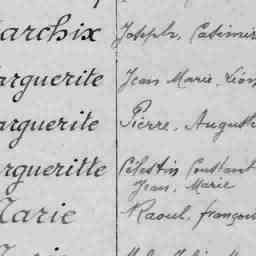 archix Joseph, Casimir
arguerite Jean Marie, Léon
arguerite Pierre, Auguste
argueritte Célestin Constant
Jean, Marie
Marie Raoul, françois